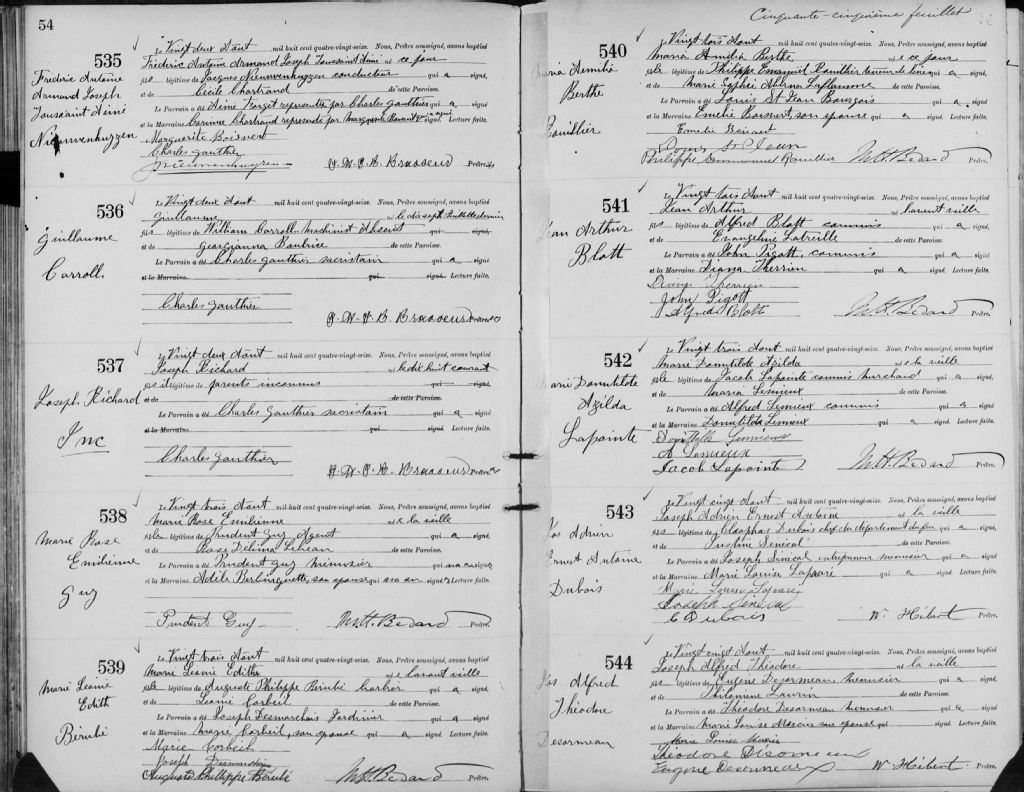 54
535
Frederic Antoine
Armand Joseph
Toussaint Aimé
Nieuwenhuyzen
Le Vingt deux Aout mil huit cent quatre-vingt-seize. Nous, Prêtre soussigné, avons baptisé
Frederic Antoine Armand Joseph Toussaint Aimé né ce jour
fils légitime de Jacques Nieuwenhuyzen conducteur qui a signé,
et de Cécile Chartrand de cette Paroisse.
Le Parrain a été Aimé Forget représenté par Charles Gauthier qui a signé
et la Marraine Corinne Chartrand représenté par Marguerite Boisvert qui a signé Lecture faite.
Marguerite Boisvert
Charles Gauthier
J. Nieuwenhuyzen
Prêtre
536
Guillaume
Carroll
Le Vingt deux Aout mil huit cent quatre-vingt-seize. Nous, Prêtre soussigné, avons baptisé
Guillaume né le dix sept Juillet dernier
fils légitime de William Carroll Machinist Absent qui signé,
et de Georgianna de cette Paroisse.
Le Parrain a été Charles Gauthier sacristain qui a signé
et la Marraine qui signé. Lecture faite.
Charles Gauthier
Prêtre
537
Joseph Richard
Inc
Le Vingt deux Aout mil huit cent quatre-vingt-seize. Nous, Prêtre soussigné, avons baptisé
Joseph Richard né le dix huit courant
fils illégitime de parents inconnus qui signé,
et de de cette Paroisse.
Le Parrain a été Charles Gauthier sacristain qui a signé
et la Marraine qui signé. Lecture faite.
Charles Gauthier
Prêtre
538
Marie Rose
Emilienne
Guy
Le Vingt trois Aout mil huit cent quatre-vingt-seize. Nous, Prêtre soussigné, avons baptisé
Marie Rose Emilienne née la veille
fille légitime de Prudent Guy Agent qui a signé,
et de Rose Délima de cette Paroisse.
Le Parrain a été Prudent Guy menuisier qui n'a su signer
et la Marraine Adèle son epouse qui n'a su signer Lecture faite.
Prudent Guy
M. H. Bedard Prêtre.
539
Marie Léonie
Edith
Bérubé
Le Vingt trois Aout mil huit cent quatre-vingt-seize. Nous, Prêtre soussigné, avons baptisé
Marie Léonie Edith née l'avant veille
fille légitime de Auguste Philippe Bérubé barbier qui a signé,
et de Léonie Corbeil de cette Paroisse.
Le Parrain a été Joseph Desmarchais Jardinier qui a signé
et la Marraine Marie Corbeil, son epouse qui a signé. Lecture faite.
Marie Corbeil
Joseph Desmarchais
Auguste Philippe Bérubé
M. H. Bedard Prêtre.
Cinquante-cinquième feuillet
540
Maria Aemilia
Berthe
Rouillier
Le Vingt trois Aout mil huit cent quatre-vingt-seize. Nous, Prêtre soussigné, avons baptisé
Maria Amilia Berthe née ce jour
fille légitime de Philippe Emmanuel Rouillier teneur de livre qui a signé,
et de Marie Sophie Albina Laflamme de cette Paroisse.
Le Parrain a été Louis St Jean Bourgeois qui a signé
et la Marraine Emélie Boisvert, son epouse qui a signé. Lecture faite.
Emélie Boisvert
Louis St Jean
Philippe Emmanuel Rouillier
M. H. Bedard Prêtre.
541
Jean Arthur
Blott
Le Vingt trois Aout mil huit cent quatre-vingt-seize. Nous, Prêtre soussigné, avons baptisé
Jean Arthur né l'avant veille
fils légitime de Alfred Blott commis qui a signé,
et de Evangeline Latreille de cette Paroisse.
Le Parrain a été John Pigott, commis qui a signé
et la Marraine Diana Therrien qui a signé. Lecture faite.
Diana Therrien
John Pigott
Alfred Blott
M. H. Bedard Prêtre.
542
Marie Domitilde
Azilda
Lapointe
Le Vingt trois Aout mil huit cent quatre-vingt-seize. Nous, Prêtre soussigné, avons baptisé
Marie Domitilde Azilda née la veille
fille légitime de Jacob Lapointe commis Marchand qui a signé,
et de Maria Lemieux de cette Paroisse.
Le Parrain a été Alfred Lemieux commis qui a signé
et la Marraine Domitilde Lemieux qui a signé. Lecture faite.
Domithilde Lemieux
A Lemieux
Jacob Lapointe
M. H. Bedard Prêtre.
543
Jos Adrien
Ernest Antoine
Dubois
Le Vingt cinq Aout mil huit cent quatre-vingt-seize. Nous, Prêtre soussigné, avons baptisé
Joseph Adrien Ernest Antoine né la veille
fils légitime de Cléophas Dubois chef du departement du feu qui a signé,
et de Justine Sénécal de cette Paroisse.
Le Parrain a été Joseph Sénécal entrepreneur menuisier qui a signé
et la Marraine Marie Louise Laparé qui a signé. Lecture faite.
Marie Louise Laparé
Joseph Sénécal
C Dubois
W. Hébert Prêtre.
544
Jos Alfred
Théodore
Desormeau
Le Vingt cinq Aout mil huit cent quatre-vingt-seize. Nous, Prêtre soussigné, avons baptisé
Joseph Alfred Théodore né la veille
fils légitime de Eugène Desormeau, menuisier qui a signé,
et de Philomène Laurin de cette Paroisse.
Le Parrain a été Théodore Desormeau menuisier qui a signé
et la Marraine Marie Louise son epouse qui a signé. Lecture faite.
Marie Louise
Théodore Désormeau
Eugène Desormeaux
W. Hébert Prêtre.